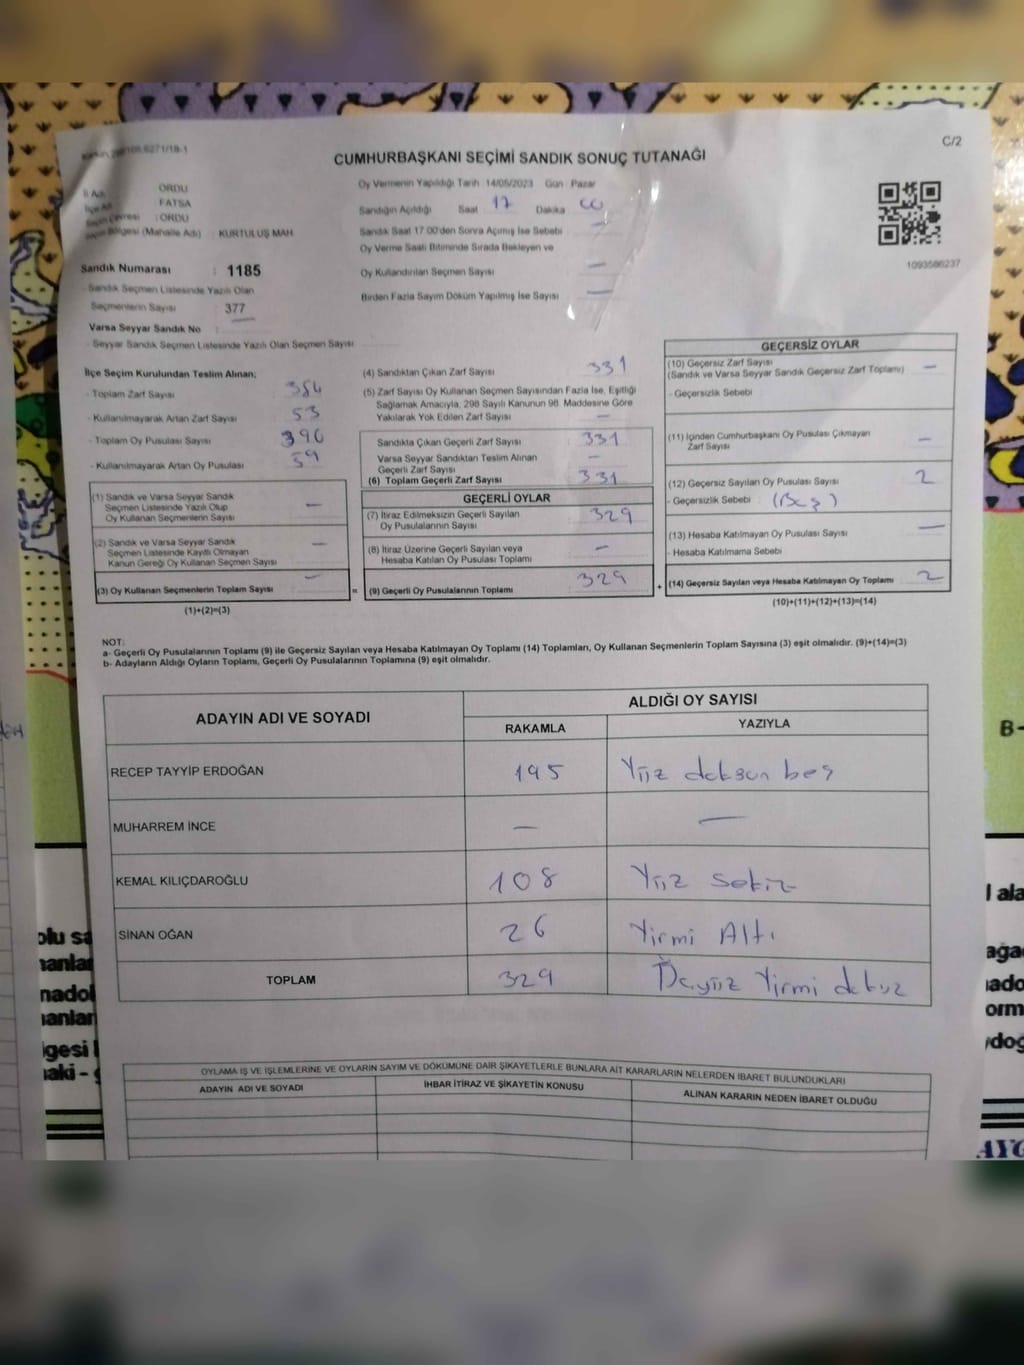 C/2
CUMHURBAŞKANI SEÇİMİ SANDIK SONUÇ TUTANAĞI
İl Adı : ORDU
İlçe Adı : FATSA
Seçim Çevresi : ORDU
Seçim Bölgesi (Mahalle Adı) : KURTULUŞ MAH
Oy Vermenin Yapıldığı Tarih 14/05/2023 Gün Pazar
Sandığın Açıldığı Saat 17 Dakika 00
Sandık Saat 17.00'den Sonra Açımış İse Sebebi —
Oy Verme Saati Bitiminde Sırada Bekleyen ve
Oy Kullandırılan Seçmen Sayısı —
Birden Fazla Sayım Döküm Yapılmış İse Sayısı —
1093586237
Sandık Numarası : 1185
- Sandık Seçmen Listesinde Yazılı Olan
Seçmenlerin Sayısı : 377
Varsa Seyyar Sandık No :
- Seyyar Sandık Seçmen Listesinde Yazılı Olan Seçmen Sayısı
İlçe Seçim Kurulundan Teslim Alınan;
- Toplam Zarf Sayısı 384
- Kullanılmayarak Artan Zarf Sayısı 53
- Toplam Oy Pusulası Sayısı 390
- Kullanılmayarak Artan Oy Pusulası 59
(1) Sandık ve Varsa Seyyar Sandık
Seçmen Listesinde Yazılı Olup
Oy Kullanan Seçmenlerin Sayısı —
(2) Sandık ve Varsa Seyyar Sandık
Seçmen Listesinde Kayıtlı Olmayan
Kanun Gereği Oy Kullanan Seçmen Sayısı —
(3) Oy Kullanan Seçmenlerin Toplam Sayısı —
(1)+(2)=(3)
(4) Sandıktan Çıkan Zarf Sayısı 331
(5) Zarf Sayısı Oy Kullanan Seçmen Sayısından Fazla İse, Eşitliği
Sağlamak Amacıyla, 298 Sayılı Kanunun 98. Maddesine Göre
Yakılarak Yok Edilen Zarf Sayısı —
Sandıkta Çıkan Geçerli Zarf Sayısı 331
Varsa Seyyar Sandıktan Teslim Alınan
Geçerli Zarf Sayısı —
(6) Toplam Geçerli Zarf Sayısı 331
GEÇERLİ OYLAR
(7) İtiraz Edilmeksizin Geçerli Sayılan
Oy Pusulalarının Sayısı 329
(8) İtiraz Üzerine Geçerli Sayılan veya
Hesaba Katılan Oy Pusulası Toplamı —
= (9) Geçerli Oy Pusulalarının Toplamı 329 +
GEÇERSİZ OYLAR
(10) Geçersiz Zarf Sayısı
(Sandık ve Varsa Seyyar Sandık Geçersiz Zarf Toplamı) —
- Geçersizlik Sebebi
(11) İçinden Cumhurbaşkanı Oy Pusulası Çıkmayan
Zarf Sayısı —
(12) Geçersiz Sayılan Oy Pusulası Sayısı 2
- Geçersizlik Sebebi (Boş)
(13) Hesaba Katılmayan Oy Pusulası Sayısı —
- Hesaba Katılmama Sebebi
(14) Geçersiz Sayılan veya Hesaba Katılmayan Oy Toplamı 2
(10)+(11)+(12)+(13)=(14)
NOT:
a- Geçerli Oy Pusulalarının Toplamı (9) ile Geçersiz Sayılan veya Hesaba Katılmayan Oy Toplamı (14) Toplamları, Oy Kullanan Seçmenlerin Toplam Sayısına (3) eşit olmalıdır. (9)+(14)=(3)
b- Adayların Aldığı Oyların Toplamı, Geçerli Oy Pusulalarının Toplamına (9) eşit olmalıdır.
ADAYIN ADI VE SOYADI ALDIĞI OY SAYISI
RAKAMLA YAZIYLA
RECEP TAYYİP ERDOĞAN 195 Yüz doksan beş
MUHARREM İNCE — —
KEMAL KILIÇDAROĞLU 108 Yüz Sekiz
SİNAN OĞAN 26 Yirmi Altı
TOPLAM 329 Üçyüz Yirmi dokuz
OYLAMA İŞ VE İŞLEMLERİNE VE OYLARIN SAYIM VE DÖKÜMÜNE DAİR ŞİKAYETLERLE BUNLARA AİT KARARLARIN NELERDEN İBARET BULUNDUKLARI
ADAYIN ADI VE SOYADI İHBAR İTİRAZ VE ŞİKAYETİN KONUSU ALINAN KARARIN NEDEN İBARET OLDUĞU